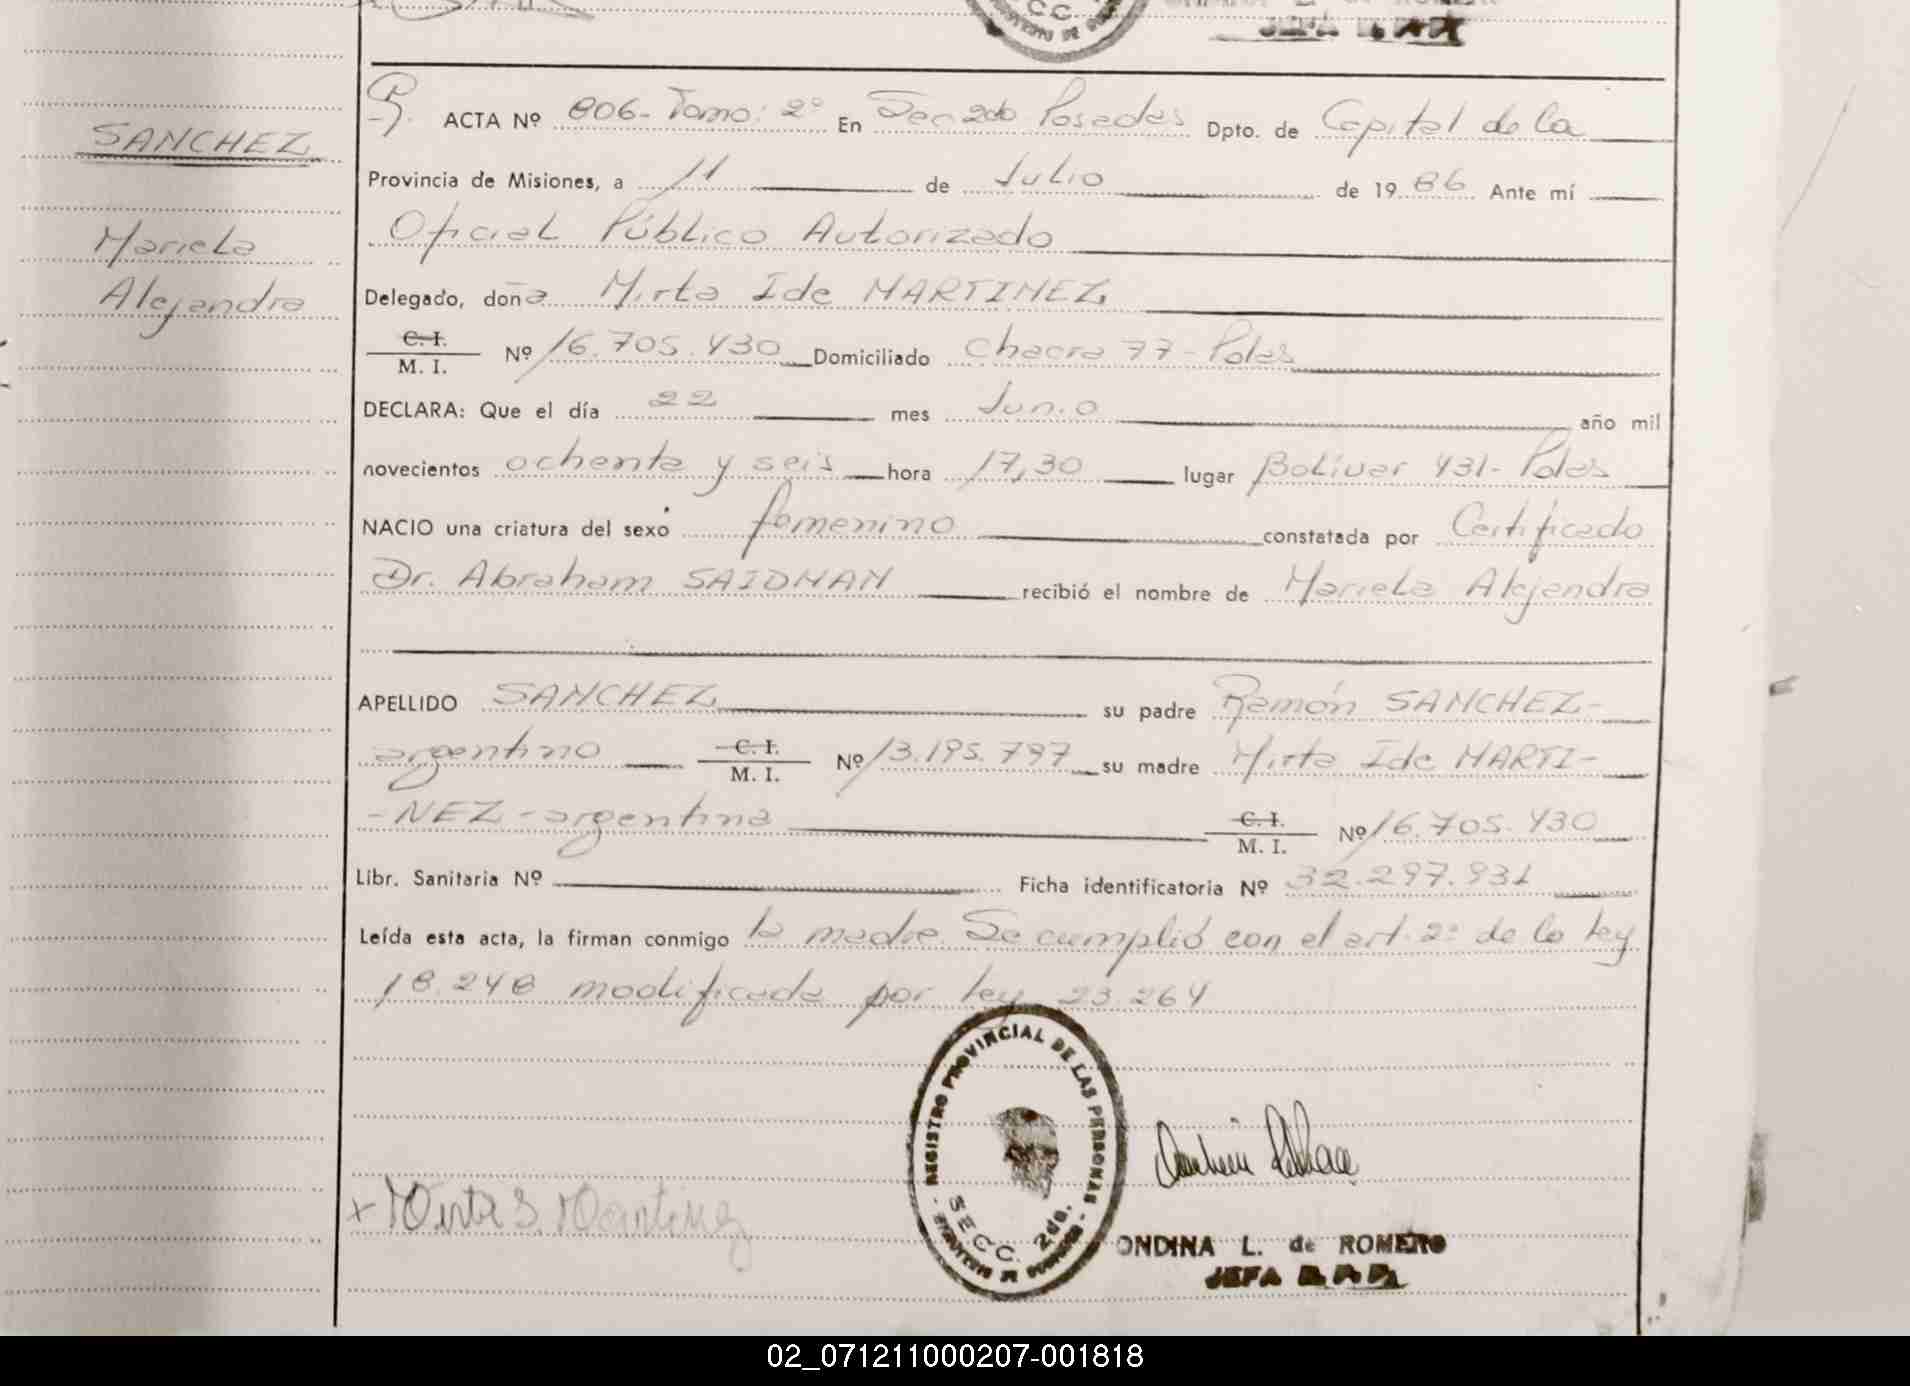 C C.
JEFA
SANCHEZ
Mariela
Alejandra
ACTA Nº 806- Tomo: 2º En Sec 2da Posadas Dpto. de Capital de la
Provincia de Misiones, a 11 de Julio de 19 86 Ante mí
Oficial Público Autorizado
Delegado, doña Mirta Ide MARTINEZ
C. I.
M. I. Nº 16.705.430 Domiciliado Chacra 77 - Pdas
DECLARA: Que el día 22 mes Junio año mil
novecientos ochenta y seis hora 17,30 lugar Bolívar 431- Pdas
NACIO una criatura del sexo femenino constatada por Certificado
Dr. Abraham SAIDMAN recibió el nombre de Mariela Alejandra
APELLIDO SANCHEZ su padre Ramón SANCHEZ-
argentino C. I. M. I. Nº 13.195.797 su madre Mirta Ide MARTI-
-NEZ - argentina C. I. M. I. Nº 16.705.430
Libr. Sanitaria Nº Ficha identificatoria Nº 32.297.931
Leída esta acta, la firman conmigo la madre. Se cumplió con el art. 2º de la ley
18.248 modificada por ley 23.264
REGISTRO PROVINCIAL DE LAS PERSONAS
SECC. 2da.
x Mirta I. Martinez
ONDINA L. de ROMERO
JEFA
02_071211000207-001818